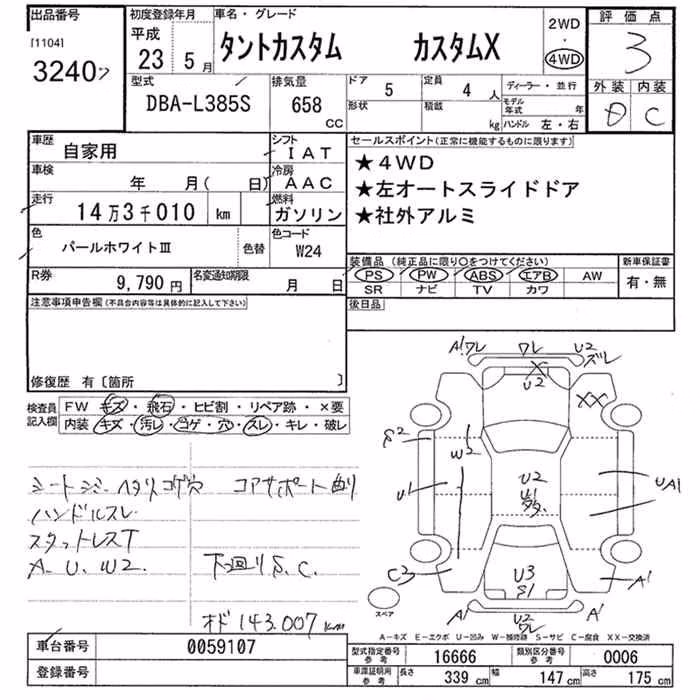 出品番号
[1104]
3240ｦ
初度登録年月
平成
23 5月
車名・グレード
タントカスタム カスタムX
2WD
・
4WD
評価点
3
外装 内装
D C
型式
DBA-L385S
排気量
658
CC
ドア
5
定員
4人
形状
積載
kg
ディーラー・並行
モデル年式 年
ハンドル 左・右
車歴
自家用
シフト
IAT
車検
年 月( 日)
冷房
AAC
走行
14万3千010 km
燃料
ガソリン
色
パールホワイトⅢ
色替
色コード
W24
R券
9,790円
名変通知期限
月 日
セールスポイント(正常に機能するものに限ります)
★4WD
★左オートスライドドア
★社外アルミ
装備品 (純正品に限り○をつけてください)
PS PW ABS エアB AW
SR ナビ TV カワ
新車保証書
有・無
後日品
注意事項申告欄(不具合内容等は具体的に記入して下さい)
修復歴 有〔箇所 〕
検査員記入欄
FW キズ・飛石・ヒビ割・リペア跡・×要
内装 キズ・汚レ・コゲ・穴・スレ・キレ・破レ
シートシミ・ヘタリコゲ穴 コアサポート曲り
ハンドルスレ
スタットレスT
A、U、W2、 下回りS、C、
オド 143,007km
A1ワレ ワレ U2ズレ
U2
XX
S2
W2
U2
U1
UA1
C3
U3
S1
A1
A1
U2
ワレ
A1
スペア
A－キズ E－エクボ U－凹み W－補修跡 S－サビ C－腐食 XX－交換済
車台番号
0059107
登録番号
型式指定番号参考
16666
類別区分番号参考
0006
車庫証明用参考
長さ 339cm 幅 147cm 高さ 175cm